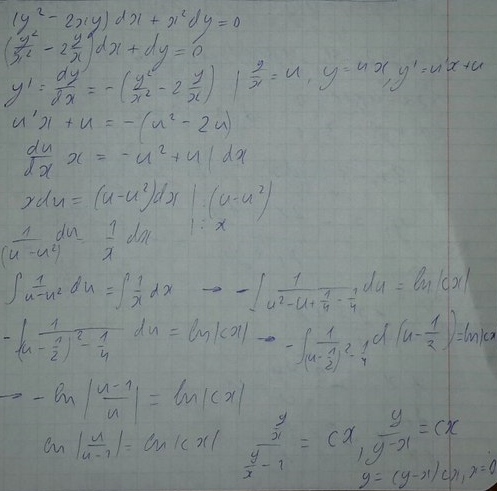 (y² - 2xy) dx + x² dy = 0
(y²/x² - 2 y/x) dx + dy = 0
y' = dy/dx = -(y²/x² - 2 y/x) | y/x = u, y = ux, y' = u'x + u
u'x + u = -(u² - 2u)
du/dx x = -u² + u | dx
x du = (u - u²) dx | : (u - u²)
| : x
1/(u - u²) du = 1/x dx
∫ 1/(u - u²) du = ∫ 1/x dx → -∫ 1/(u² - u + 1/4 - 1/4) du = ln|cx|
-∫ 1/((u - 1/2)² - 1/4) du = ln|cx| → -∫ 1/((u - 1/2)² - 1/4) d(u - 1/2) = ln|cx
→ -ln |(u-1)/u| = ln|cx|
ln |u/(u-1)| = ln|cx| (y/x)/(y/x - 1) = cx, y/(y-x) = cx
y = (y-x) cx, x = 0